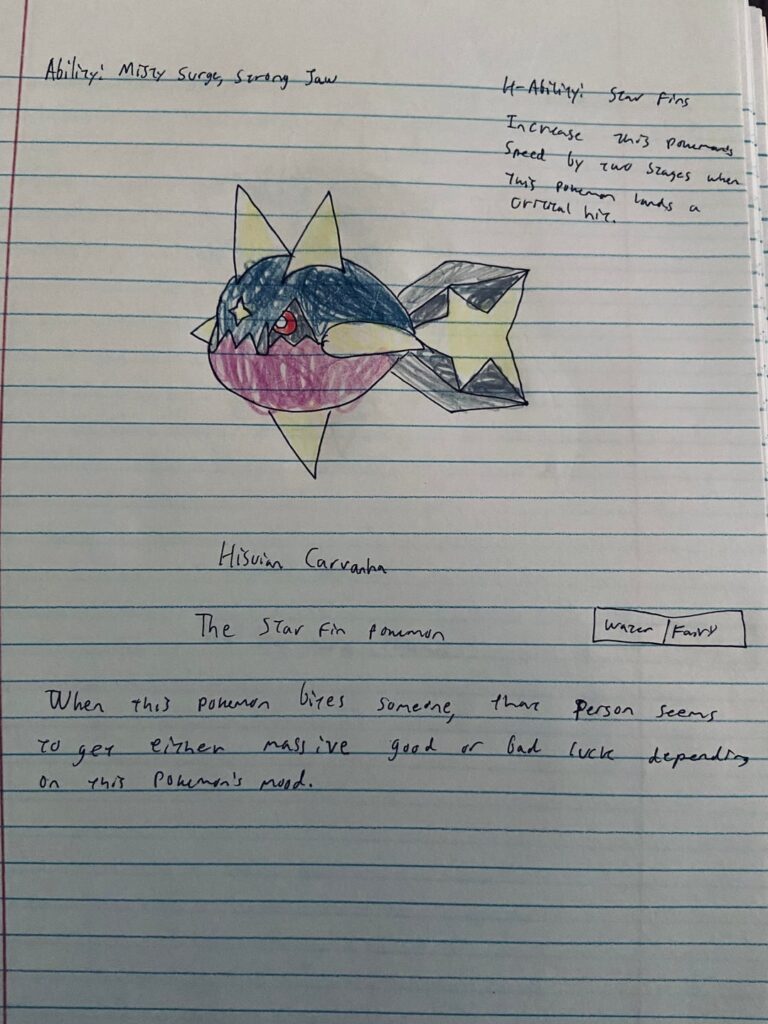 Ability: Misty Surge, Strong Jaw
H-Ability: Star Fins
Increase this pokemon's
Speed by two stages when
this pokemon lands a
critical hit.
Hisuian Carvanha
The Star Fin Pokemon
Water | Fairy
When this pokemon bites someone, that person seems
to get either massive good or bad luck depending
on this Pokemon's mood.